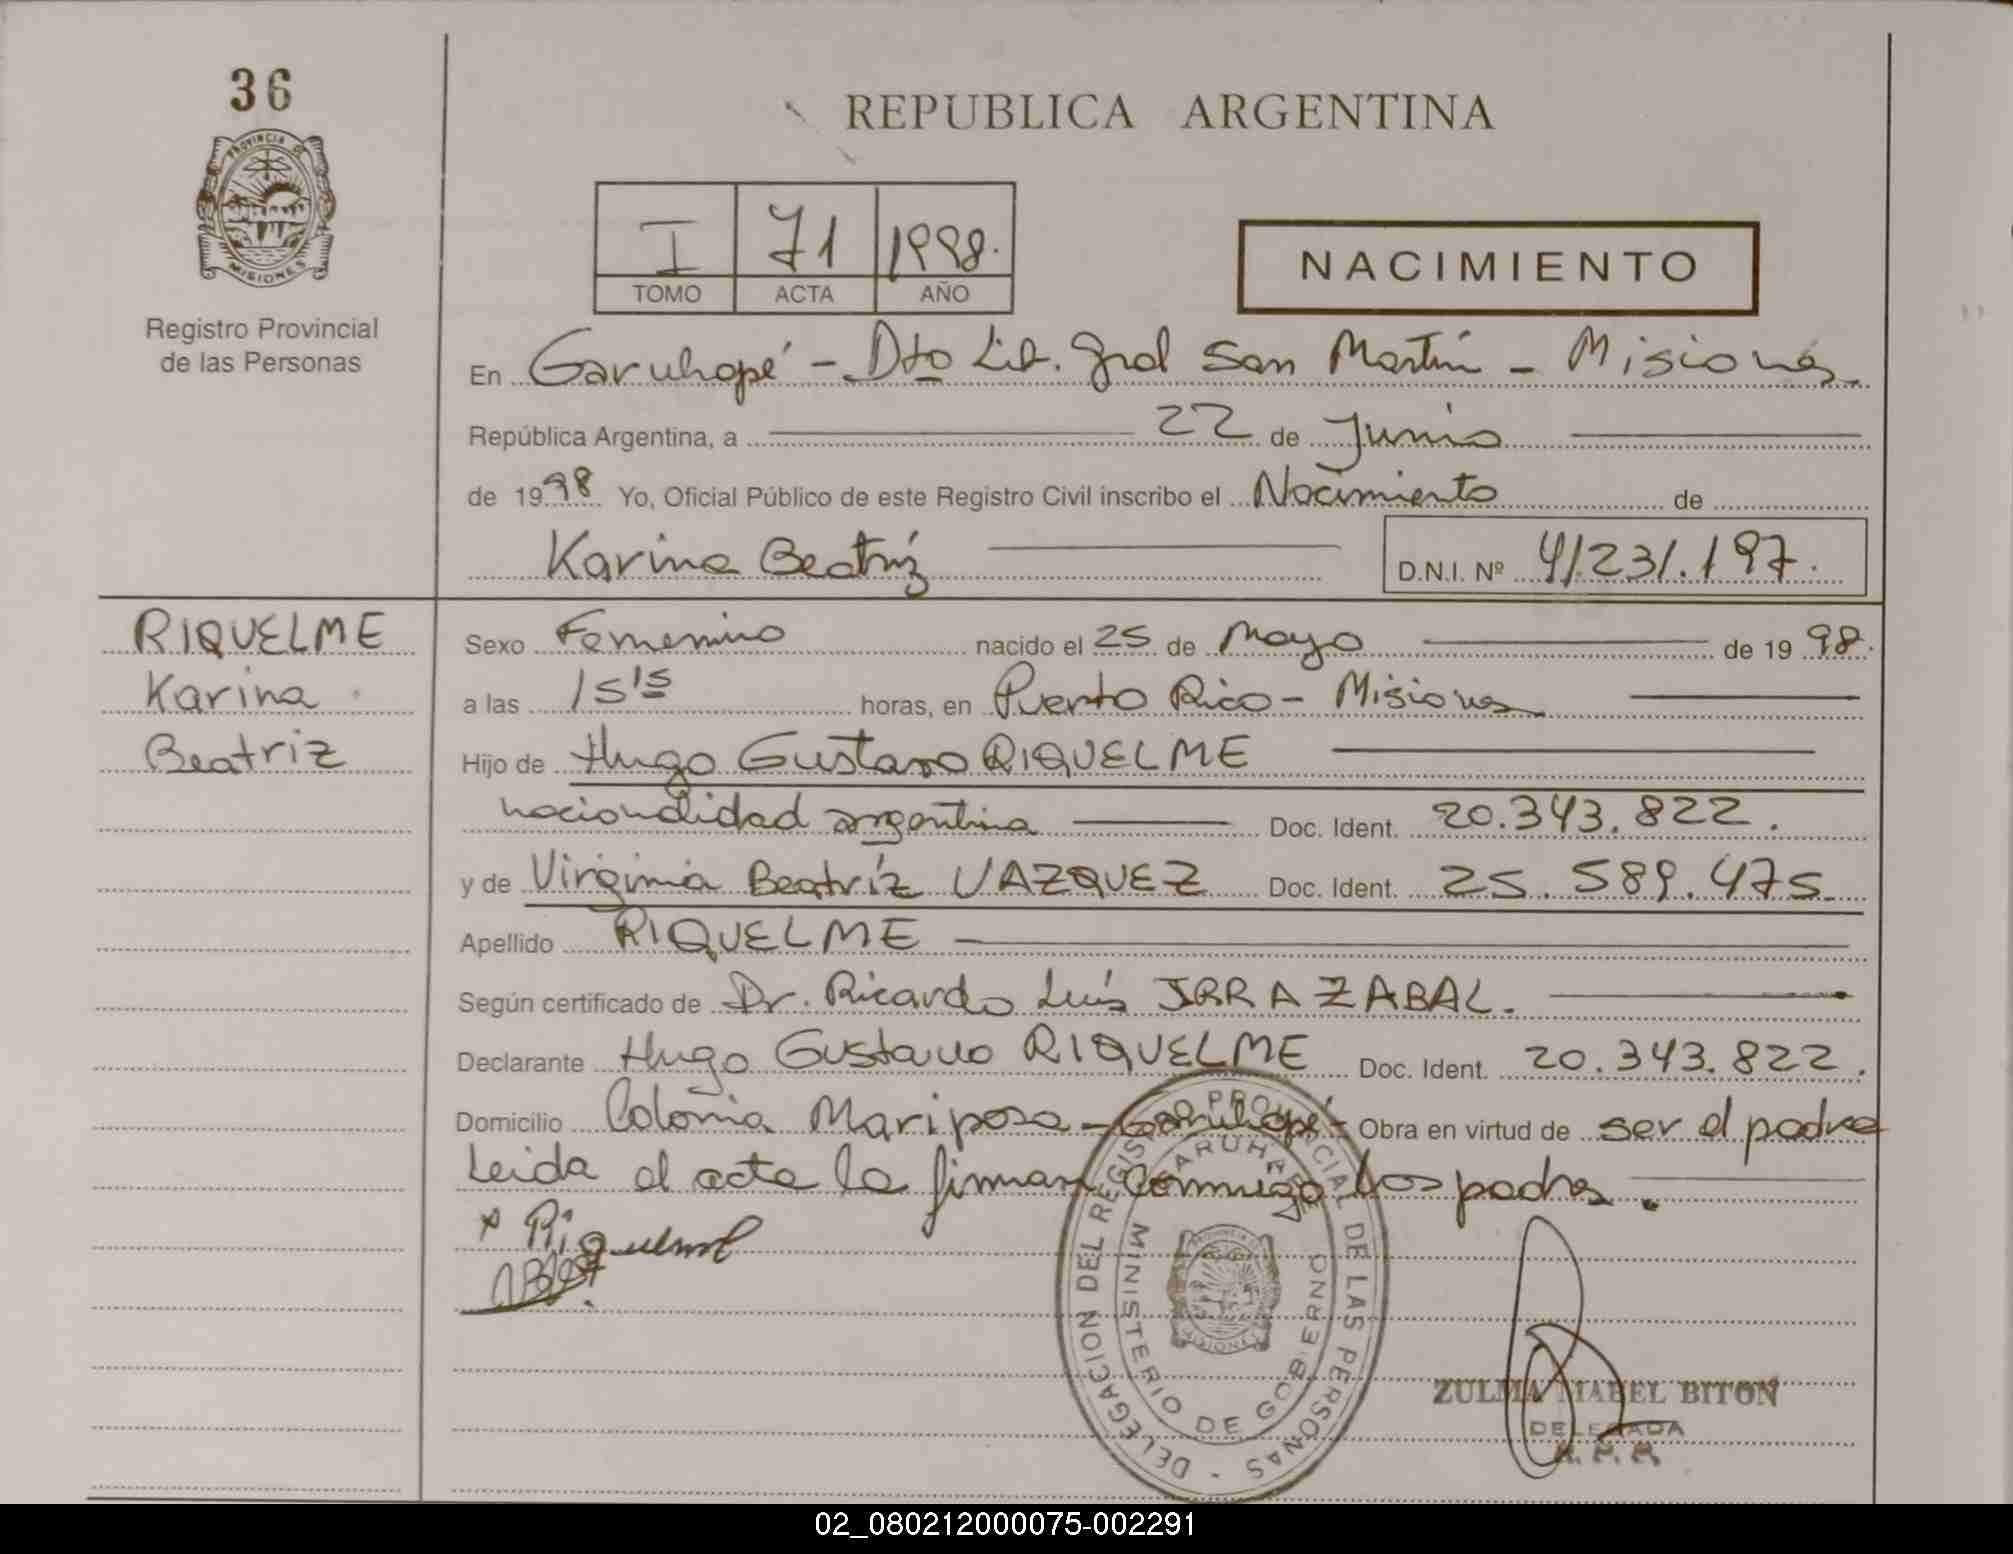 36
PROVINCIA DE
MISIONES
Registro Provincial
de las Personas
REPUBLICA ARGENTINA
I 71 1998.
TOMO ACTA AÑO
NACIMIENTO
En Garuhapé - Dto Lib. Gral San Martín - Misiones
República Argentina, a 22 de Junio
de 1998 Yo, Oficial Público de este Registro Civil inscribo el Nacimiento de
Karina Beatríz D.N.I. Nº 41231.197.
RIQUELME
Karina
Beatriz
Sexo Femenino nacido el 25 de Mayo de 1998.
a las 15 15 horas, en Puerto Rico - Misiones
Hijo de Hugo Gustavo RIQUELME
nacionalidad argentina Doc. Ident. 20.343.822.
y de Virginia Beatríz VAZQUEZ Doc. Ident. 25.589.475.
Apellido RIQUELME
Según certificado de Dr. Ricardo Luís IRRAZABAL.
Declarante Hugo Gustavo RIQUELME Doc. Ident. 20.343.822.
Domicilio Colonia Mariposa - Garuhapé - Obra en virtud de ser el padre
Leida el acta la firman conmigo los padres.
x Riquelme
DELEGACION DEL REGISTRO PROVINCIAL DE LAS PERSONAS -
GARUHAPE
MINISTERIO DE GOBIERNO
MISIONES
ZULMA MABEL BITON
DELEGADA
R. P. P.
02_080212000075-002291